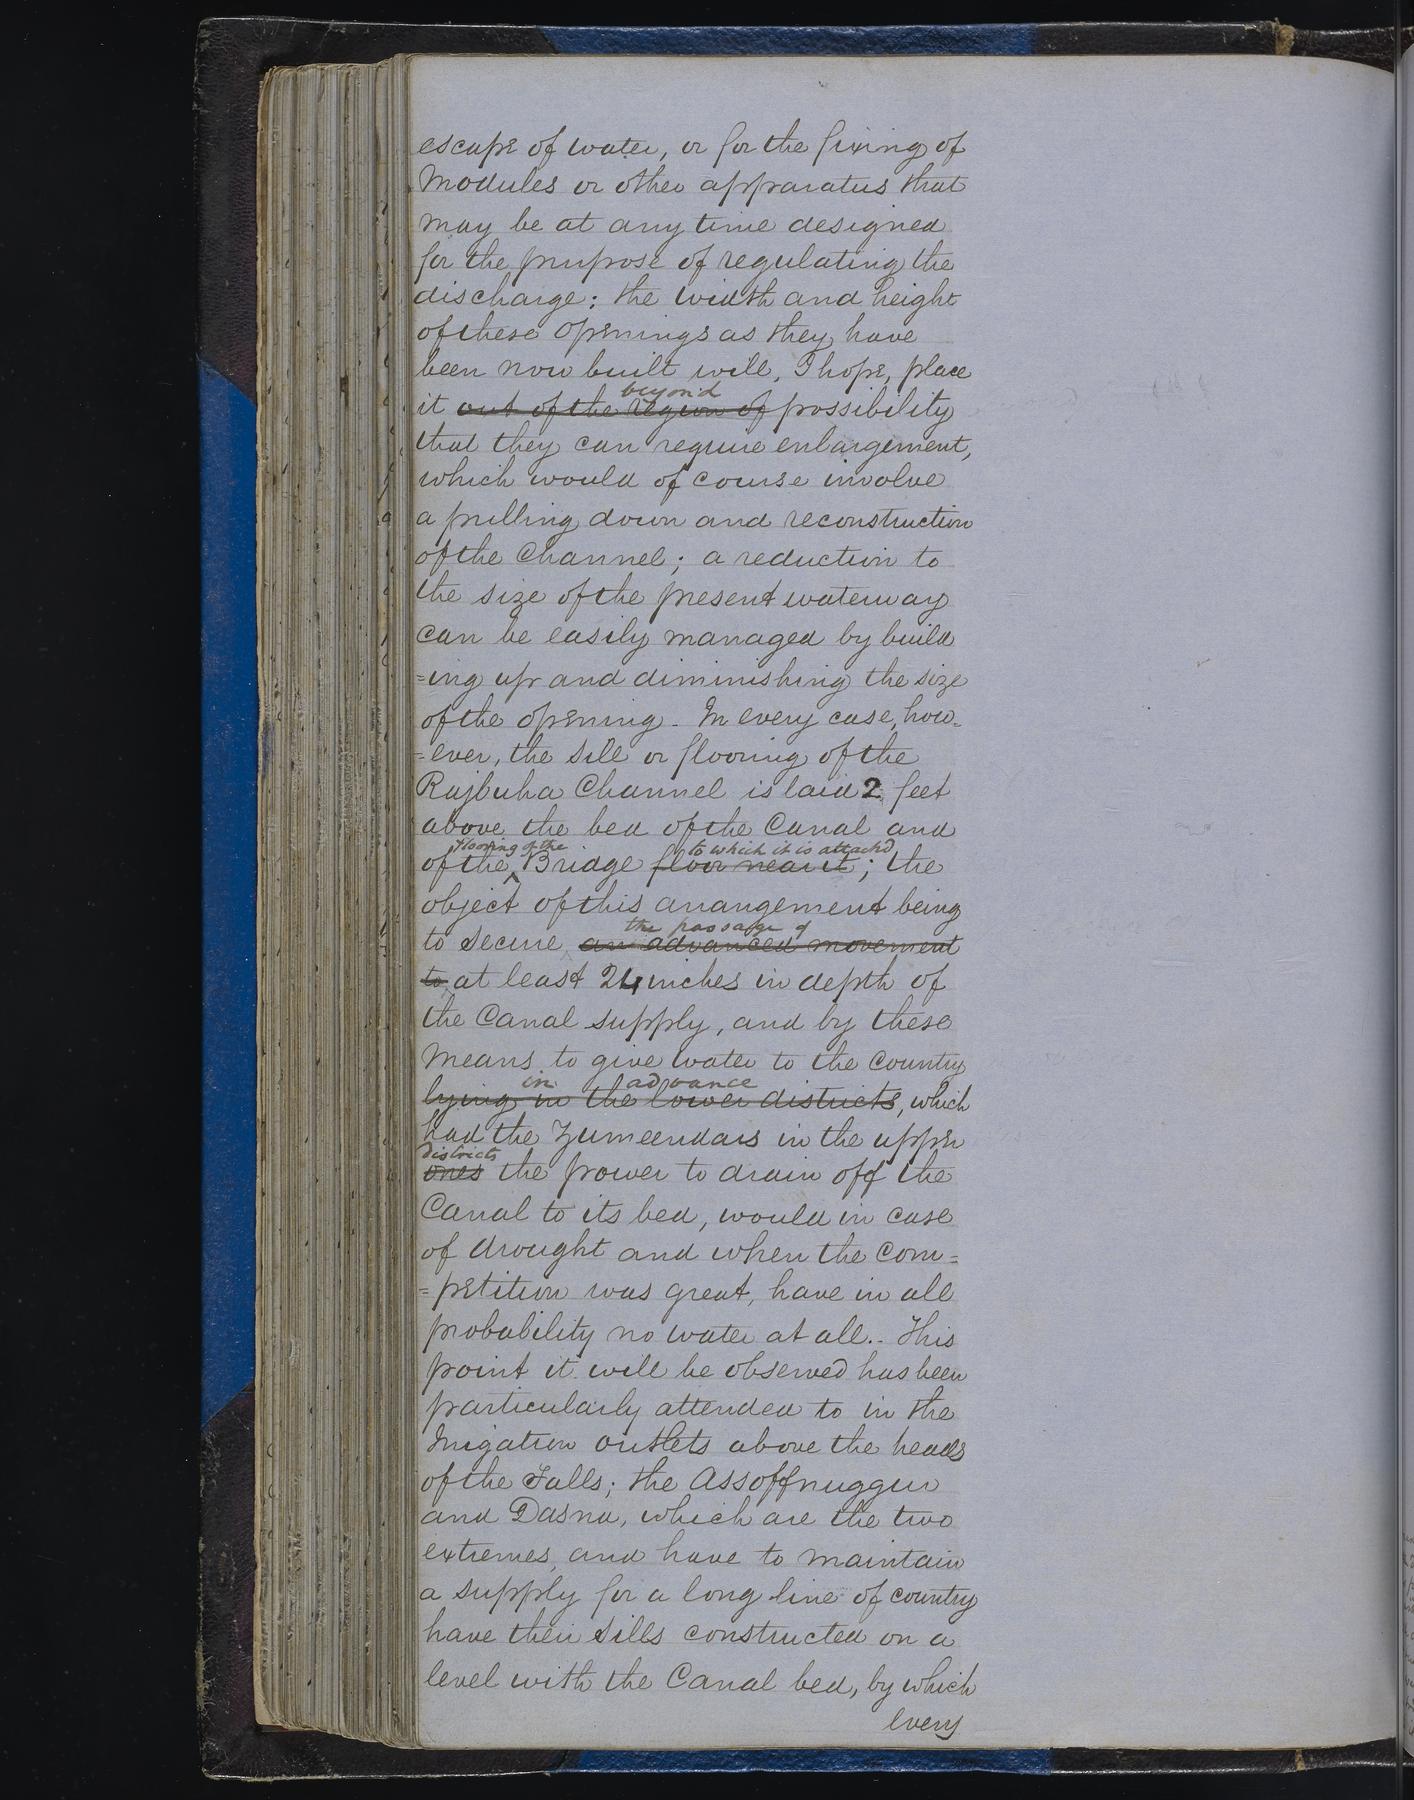 escape of water, or for the fixing of
Modules or other apparatus that
may be at any time designed
for the purpose of regulating the
discharge: the width and height
of these openings as they have
been now built will, I hope, place
beyond
it out of the region of possibility
that they can require enlargement,
which would of course involve
a pulling down and reconstruction
of the Channel; a reduction to
the size of the present waterway
can be easily managed by build
=ing up and diminishing the size
of the opening. In every case, how-
=ever, the sill or flooring of the
Rajbuha Channel is laid 2 feet
above the bed of the Canal and
flooring of the to which it is attached
of the Bridge floor near it; the
object of this arrangement being
the passage of
to secure an advanced movement
to at least 24 inches in depth of
the Canal supply, and by these
means to give water to the country
in advance
lying in the lower districts, which
had the Zumeendars in the upper
districts
ones the power to drain off the
Canal to its bed, would in case
of drought and when the com=
=petition was great, have in all
probability no water at all.. This
point it will be observed has been
particularly attended to in the
Irrigation outlets above the heads
of the Falls; the Assoffnuggur
and Dasna, which are the two
extremes, and have to maintain
a supply for a long line of country
have their sills constructed on a
level with the Canal bed, by which
every